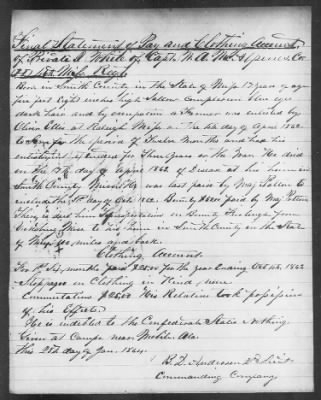 Final Statement of Pay and Clothing Account
of Private A White of Capt. W. A. Mc
Miss. Regt.
Born in Smith County in the State of Miss 17 years of age
five feet eight inches high Sallow complexion blue eyes
dark hair and by occupation a Farmer was enlisted by
at Raleigh Miss on the day of April 1862
to Serve for the period of Twelve Months and had his
enlistment extended for Three Years or the War. He died
on the day of April 1862 of Disease at his home in
Smith County Miss. He was last paid by Maj
to include the day of Oct. 1862. Bounty $50.00 paid by Maj
There is due him from
Vicksburg Miss to his home in Smith County in the State
of Miss miles and back.
Clothing Account.
For 1st Six months paid $25.00 for the year Ending Oct 8th, 1862
Stoppages in Clothing in Kind, were
Commutation $25.00 His Relation took possession
of his Effects.
He is indebted to the Confederate States Nothing.
Given at Camp near Mobile Ala.
This 28th day of Jan. 1864.
Anderson
Commanding Company